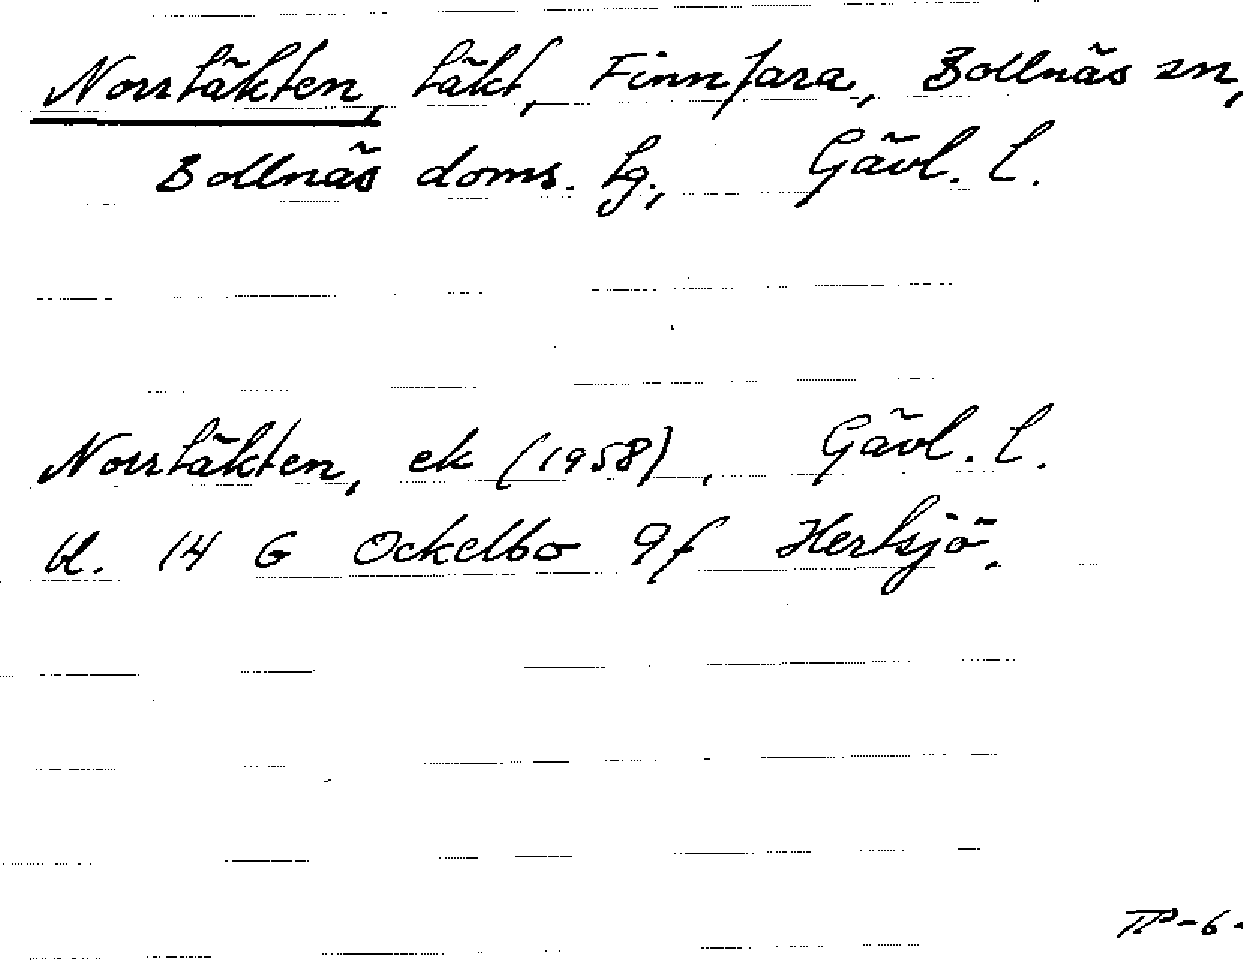 Norrtäkten, täkt, Finnfara, Bollnäs sn,
Bollnäs doms. lg., Gävl. l.
Norrtäkten, ek (1958), Gävl. l.
bl. 14 G Ockelbo 9f Hertsjö.
TP-6-